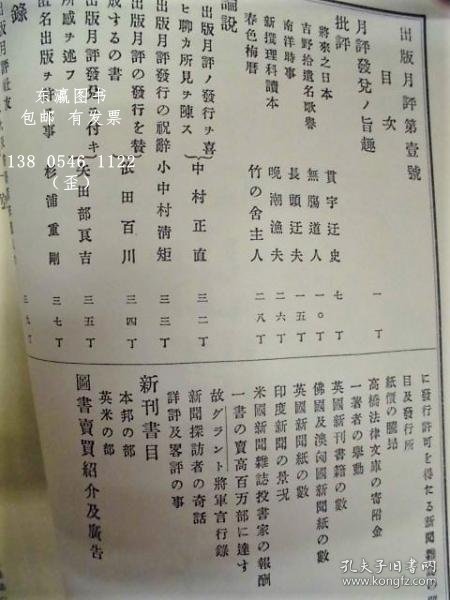 出版月評第壹號
目次
月評發兌ノ旨趣 一丁
批評
將來之日本 貫宇迂史 七丁
吉野拾遺名歌譽 無膓道人 一〇丁
南洋時事 長頭迂夫 一五丁
新撰理科讀本 晩潮漁夫 二六丁
春色梅暦 竹の舍主人 二八丁
論説
出版月評ノ發行ヲ喜
ヒ聊カ所見ヲ陳ス 中村正直 三二丁
出版月評發行の祝辭 小中村清矩 三三丁
出版月評の發行を替
成するの書 依田百川 三四丁
出版月評發兌ニ付キ
所感ヲ述フ 矢田部良吉 三五丁
匿名出版ヲ 事 杉浦重剛 三七丁
錄
出版月評社
に發行許可を得たる新聞雜誌の
目及發行所
紙價の騰昂
高橋法律文庫の寄附金
一著者の擧動
英國新刊書籍の數
佛國及澳匈國新聞紙の數
英國新聞紙の數
印度新聞の景况
米國新聞雜誌投書家の報酬
一書の賣高百万部に達す
故グラント將軍言行錄
新聞探訪者の奇話
詳評及畧評の事
新刊書目
本邦の部
英米の部
圖書賣買紹介及廣告
东瀛图书
包邮 有发票
138 0546 1122
（歪）
孔夫子旧书网